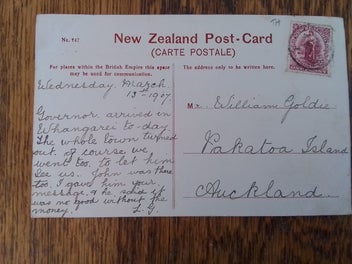 TA
No. 947
New Zealand Post-Card
(CARTE POSTALE)
For places within the British Empire this space
may be used for communication.
The address only to be written here.
Wednesday, March
13th 1907.
Governor arrived in
Whangarei to-day
The whole town turned
out. of course we
went too, to let him
see us. John was there
too. I gave him your
message, & he said it
was no good without the
money. L. G.
Mr. William Goldie
Pakatoa Island
Auckland